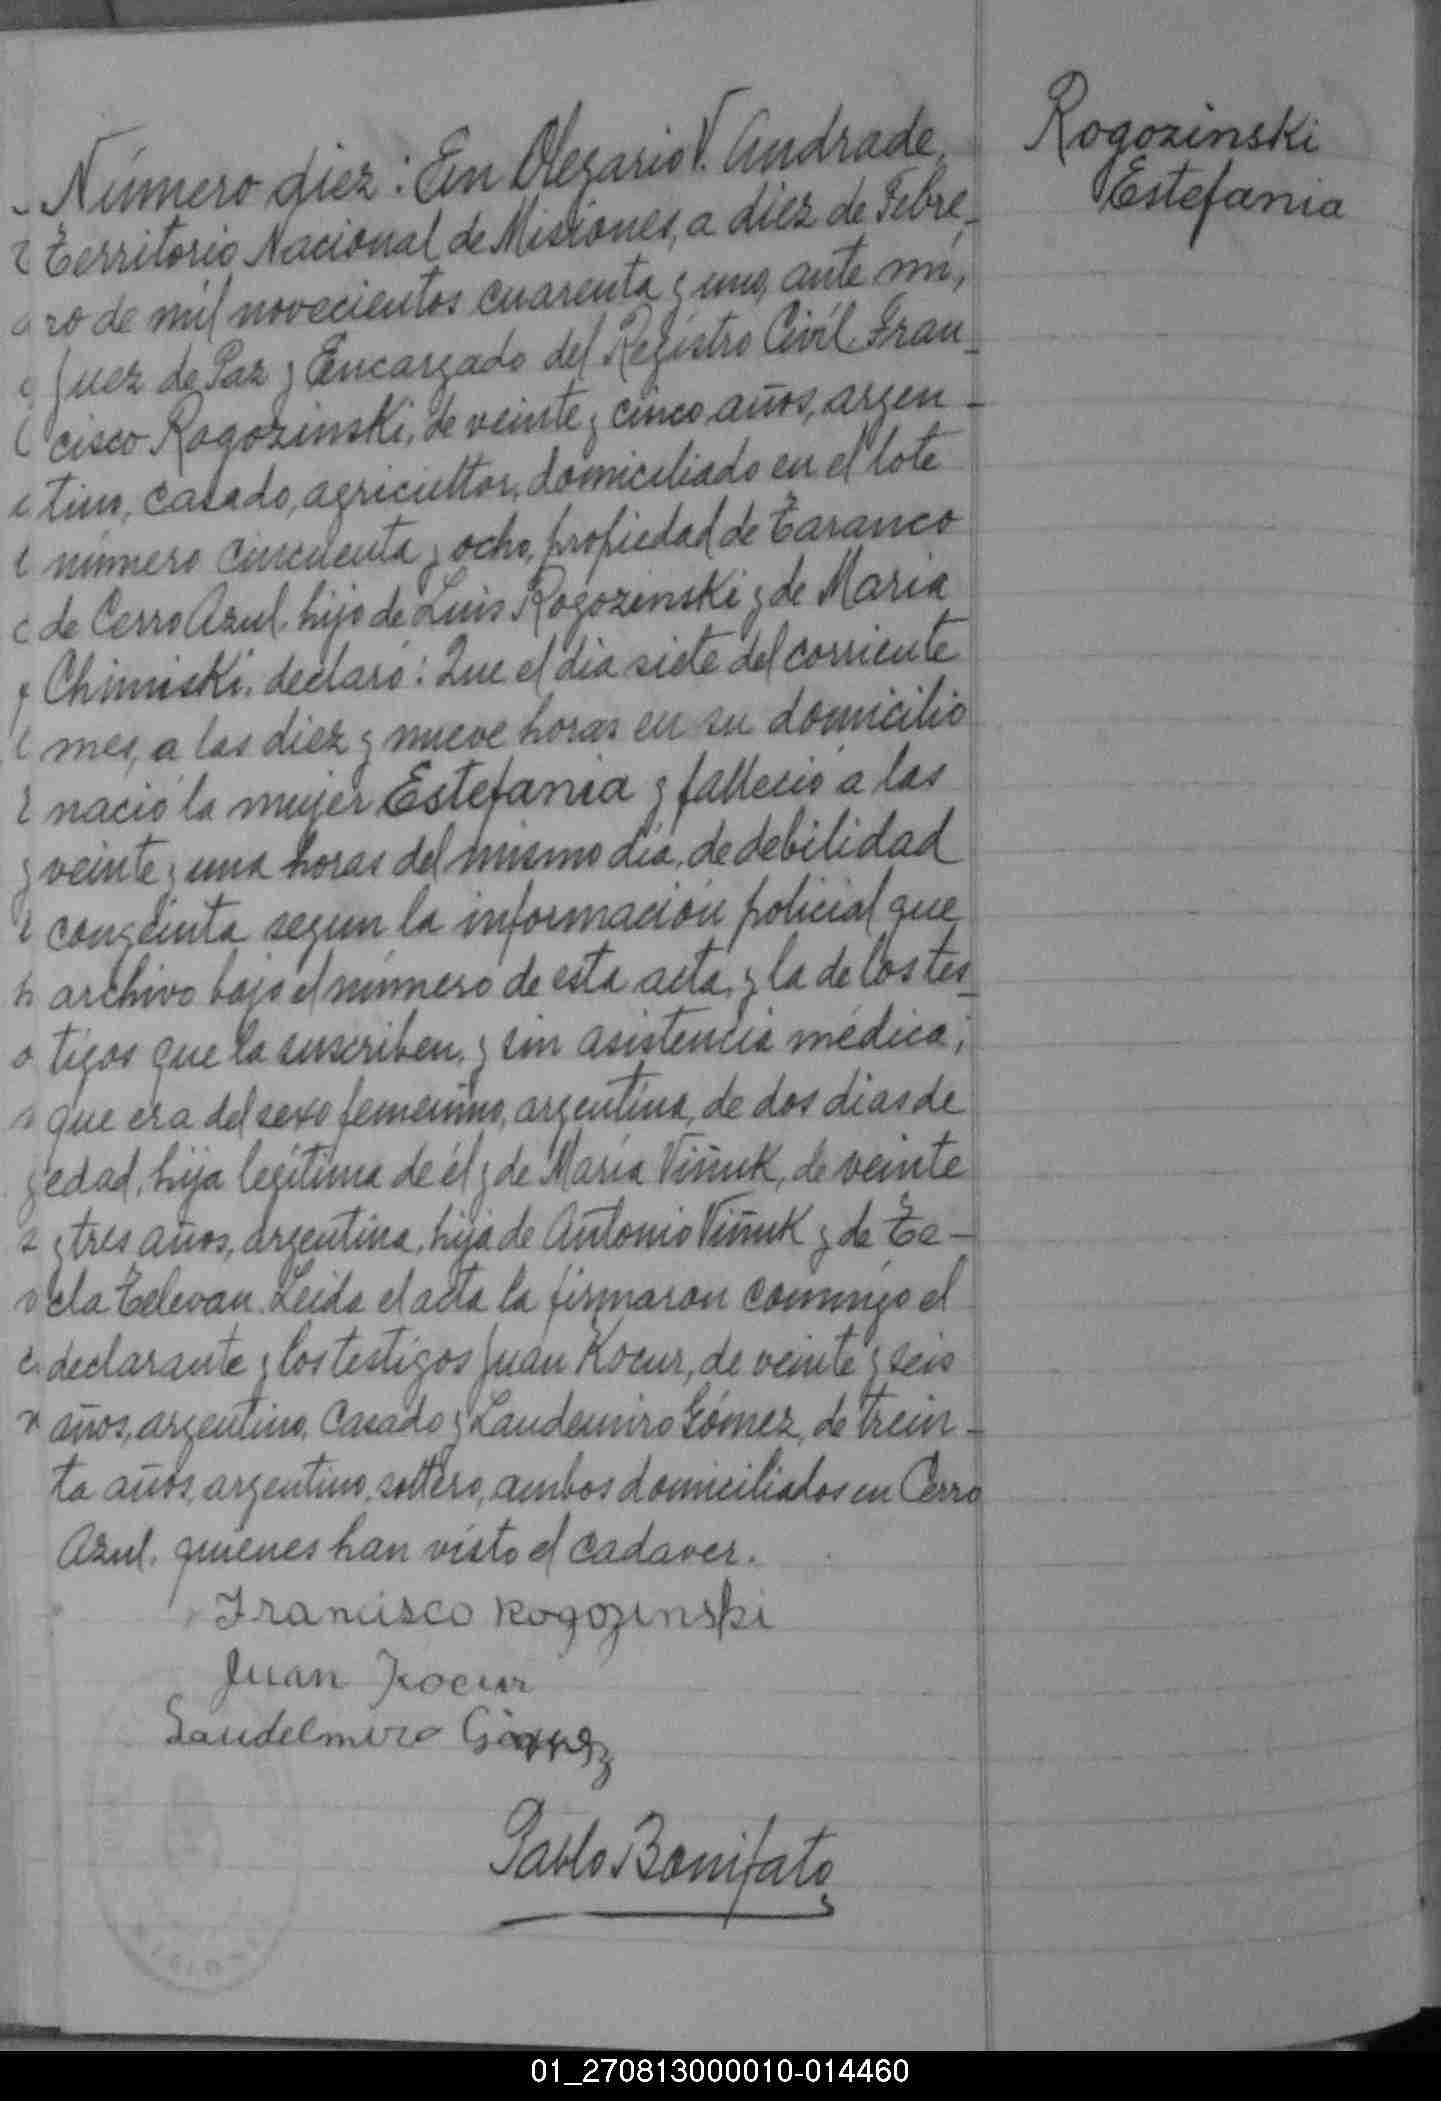 Rogozinski
Estefania
Número diez: En Olegario V. Andrade,
Territorio Nacional de Misiones, a diez de Febre_
ro de mil novecientos cuarenta y uno, ante mí,
Juez de Paz y Encargado del Registro Civil. Fran_
cisco Rogozinski, de veinte y cinco años, argen_
tino, casado, agricultor, domiciliado en el lote
número cincuenta y ocho, propiedad de Taranco
de Cerro Azul, hijo de Luis Rogozinski y de Maria
Chimiski, declaró: Que el dia siete del corriente
mes, a las diez y nueve horas en su domicilio
nació la mujer Estefania y falleció a las
veinte y una horas del mismo dia, de debilidad
congeinta segun la información policial que
archivo bajo el número de esta acta, y la de los tes_
tigos que la suscriben, y sin asistencia médica;
que era del sexo femenino, argentina, de dos dias de
edad, hija legítima de él y de Maria Viñuk, de veinte
y tres años, argentina, hija de Antonio Viñuk y de Te_
cla Televan. Leida el acta la firmaron conmigo el
declarante y los testigos Juan Kocur, de veinte y seis
años, argentino, casado y Laudemiro Gómez, de trein_
ta años, argentino, soltero, ambos domiciliados en Cerro
Azul, quienes han visto el cadaver.
Francisco Rogozinski
Juan Kocur
Laudelmiro Gomez
Pablo Bonifato
01_270813000010-014460